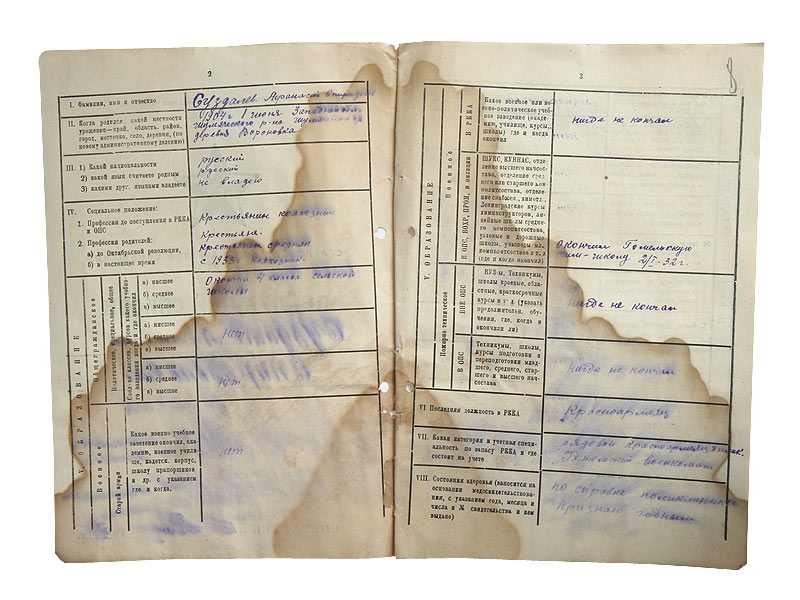 2
I. Фамилия, имя и отчество
Суздалев Афанасий
II. Когда родился, какой местности
уроженец—край, область, район,
город, местечко, село, деревня, (по
новому административному делению)
1904 г 1 июня
деревня Вороновка
III. 1) Какой национальности
2) какой язык считаете родным
3) какими друг. языками владеете
русский
русский
не владею
IV. Социальное положение:
1. Профессия до поступления в РККА
и ОПС
2. Профессия родителей:
а) до Октябрьской революции,
б) в настоящее время
Крестьянин колхозник
Крестьяне.
Крестьянин средняк
колхозник.
V. ОБРАЗОВАНИЕ
Общегражданское
а) низшее
б) среднее
в) высшее
Окончил 4 класса сельской
школы
а) низшее
б) среднее
в) высшее
нет
а) низшее
б) среднее
в) высшее
нет
Военное
Старой армии
Какое военно-учебное
заведение окончил, ака-
демию, военное учили-
ще, кадетск. корпус,
школу прапорщиков
и др. с указанием
где и когда.
нет
3
8
V. ОБРАЗОВАНИЕ
Военное
В РККА
Какое военное или во-
енно-политическое учеб-
ное заведение (акаде-
мию, училище, курсы,
школы) где и когда
окончил
нигде не кончал
В ОПС, ВОХР, ПРОМ, и милиции
ШУКС, КУВНАС, отде-
ление высшего начсос-
тава, отделение сред-
него или старшего ком-
политсостава, отделе-
ние снабжен.,
Ленинградские курсы
админструкторов, ли-
нейные школы средне-
го комполитсостава,
узловые и дорожные
школы,
комполитсостава и т. д
(где и когда окончил)
Окончил Гомельскую
школу 2/I-32 г.
Пожарно техническое
ВНЕ ОПС
ВУЗ-ы, Техникумы,
школы краевые, обла-
стные, краткосрочные
курсы и т д (указать
продолжительн. обуче-
ния, где, когда и
окончили ли)
нигде не кончал
В ОПС
Техникумы, школы,
курсы подготовки и
переподготовки млад-
шего, среднего, стар-
шего и высшего нач-
состава
нигде не кончал
VI Последняя должность в РККА
Красноармеец
VII. Какая категория и учетная специ-
альность по запасу РККА и где
состоит на учете
рядовой красноармеец
военкомат
VIII. Состояния здоровья (вносится на
основании медосвидетельствова-
ния, с указанием года, месяца и
числа и № свидетельства и кем
выдано)
по справке поликлиники
признан годным